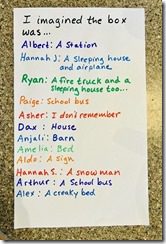 I imagined the box
was...
Albert: A Station
Hannah J: A Sleeping house
and airplane
Ryan: A fire truck and a
sleeping house too...
Paige: School bus
Asher: I don't remember
Dax: House
Anjali: Barn
Amelia: Bed
Aldo: A sign
Hannah S.: A snow man
Arthur: A School bus
Alex: A creaky bed